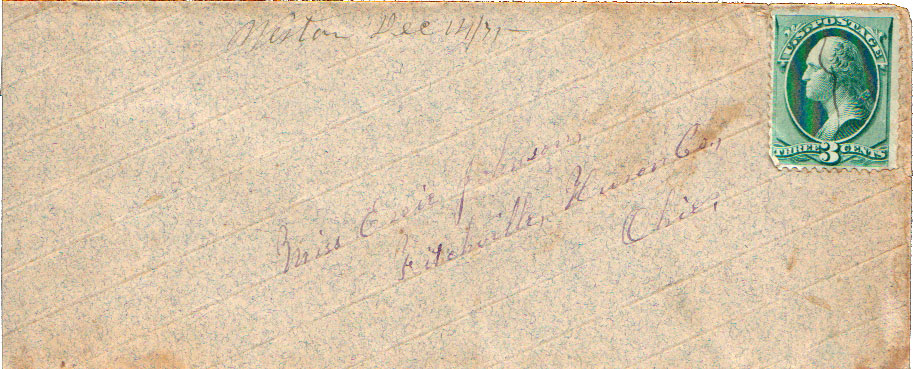 Weston Dec 14/71-
U.S. POSTAGE
THREE 3 CENTS
Miss Evie Johnson,
Fitchville, Huron Co,
Ohio,